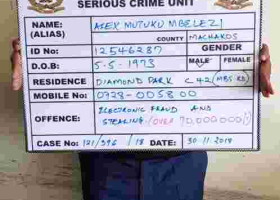 SERIOUS CRIME UNIT
NAME: ALEX MUTUKU MBELEZI
(ALIAS) COUNTY MACHAKOS
ID No: 12546287 GENDER
D.O.B: 5-5-1973 MALE FEMALE
RESIDENCE DIAMOND PARK C42 (MBS RD)
MOBILE NO: 0728-005800
ELECTRONIC FRAUD AND
OFFENCE: STEALING (OVER 70,000,000)
CASE No: 121/596/18 DATE: 30-11-2018